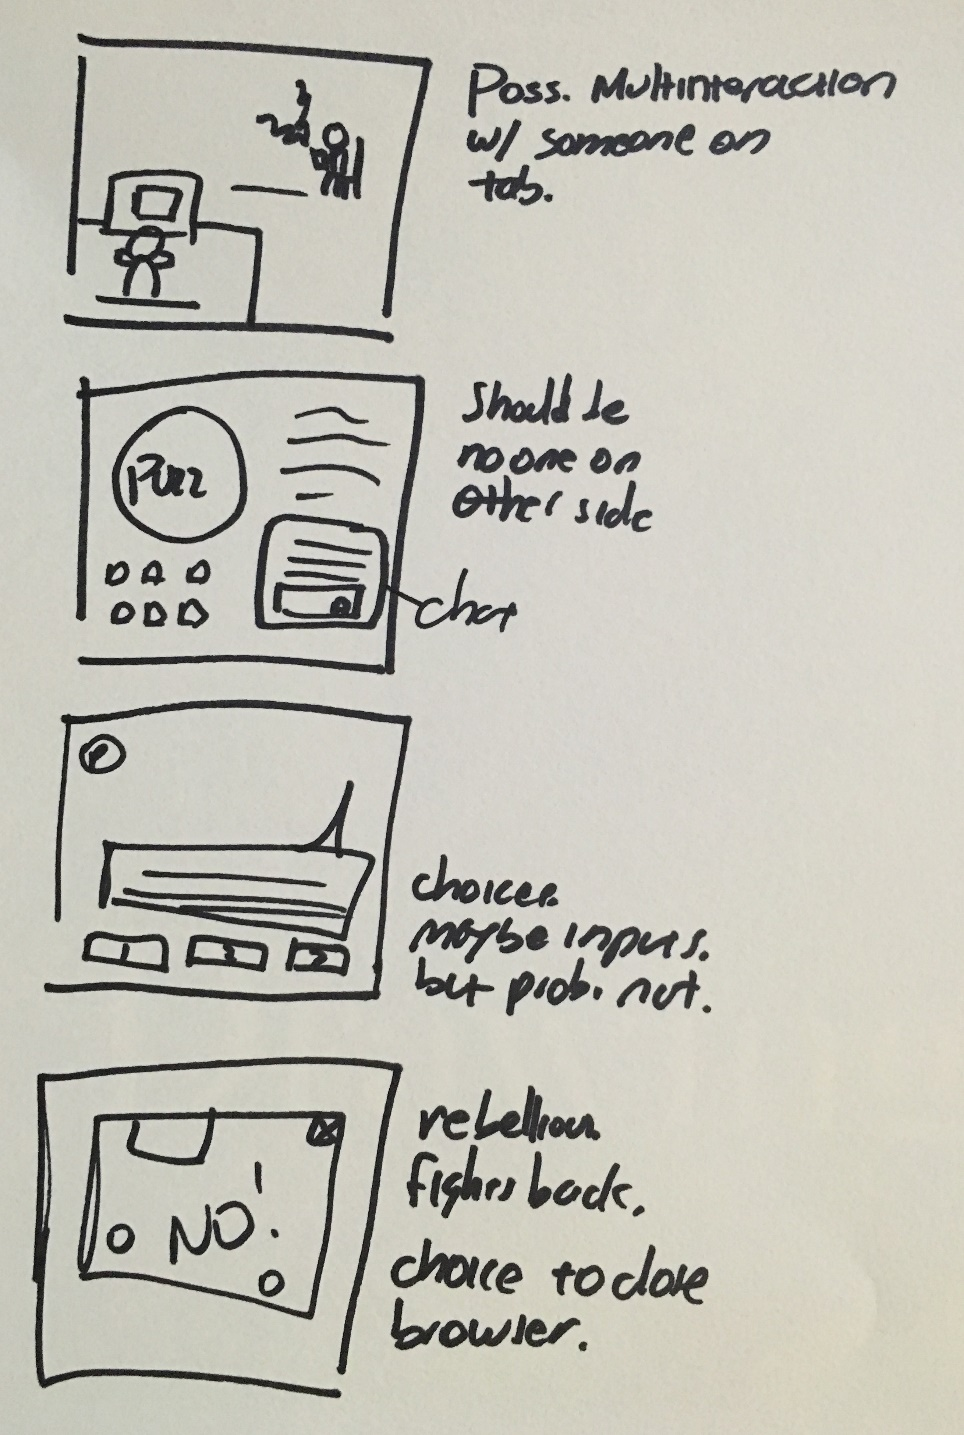 Poss. Multinteraction
w/ someone on
tab.
Should be
no one on
other side
Purr
chat
P
choices.
maybe inputs.
but prob. not.
1 2 3
rebellious.
fights back.
NO!
choice to close
browser.